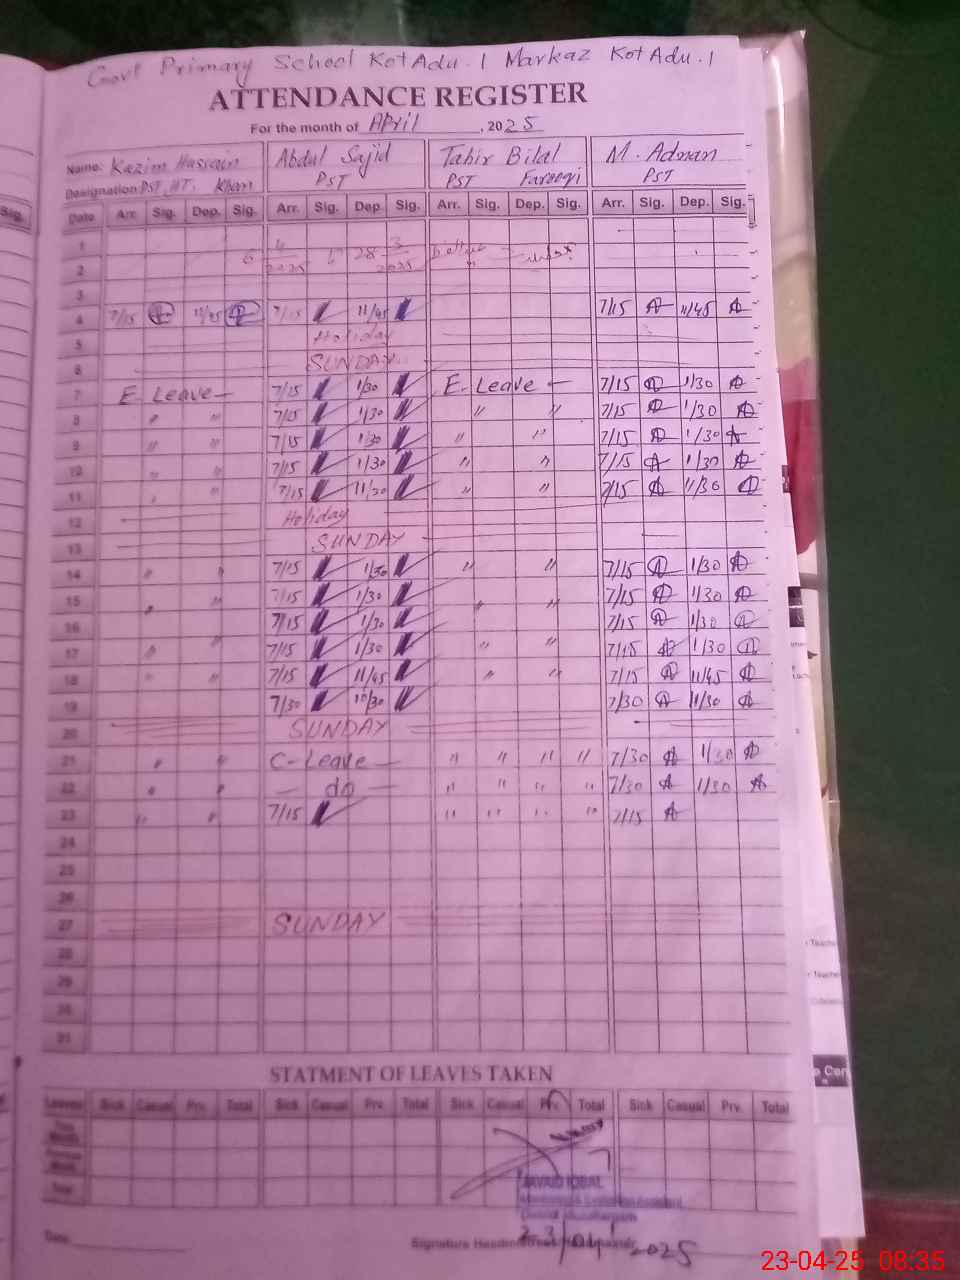 Govt Primary School Kot Adu.1 Markaz Kot Adu.1
ATTENDANCE REGISTER
For the month of April, 2025
Name: Kazim Hussain Abdul Sajid Tahir Bilal M. Adnan
Designation: PST, HT. Khan PST PST Farooqi PST
Sig. Date Arr. Sig. Dep. Sig. Arr. Sig. Dep. Sig. Arr. Sig. Dep. Sig. Arr. Sig. Dep. Sig.
1
2 2025 28 2025
3
4 7/15 11/45 7/15 11/45 7/15 11/45
5 Holiday
6 SUNDAY
7 E- Leave — 7/15 1/30 E- Leave — 7/15 1/30
8 " " 7/15 1/30 " " 7/15 1/30
9 " " 7/15 1/30 " " 7/15 1/30
10 " " 7/15 1/30 " " 7/15 1/30
11 " " 7/15 11/30 " " 7/15 11/30
12 Holiday
13 SUNDAY
14 " " 7/15 1/30 " " 7/15 1/30
15 " " 7/15 1/30 " " 7/15 1/30
16 7/15 1/30 7/15 1/30
17 " " 7/15 1/30 " " 7/15 1/30
18 " " 7/15 11/45 " " 7/15 11/45
19 7/30 10/30 7/30 11/30
20 SUNDAY
21 " " C- Leave — " " " " 7/30 1/30
22 " " — do — " " " " 7/30 1/30
23 " " 7/15 " " " " 7/15
24
25
26
27 SUNDAY
28
29
30
31
STATMENT OF LEAVES TAKEN
Leaves Sick Casual Prv. Total Sick Casual Prv. Total Sick Casual Prv. Total Sick Casual Prv. Total
This Month
Previous Month
Total
JAVAID IQBAL
Monitoring & Evaluation Assistant
District Muzaffargarh
Date
Signature Headmistress/Headmaster
23/04/2025
23-04-25 08:35